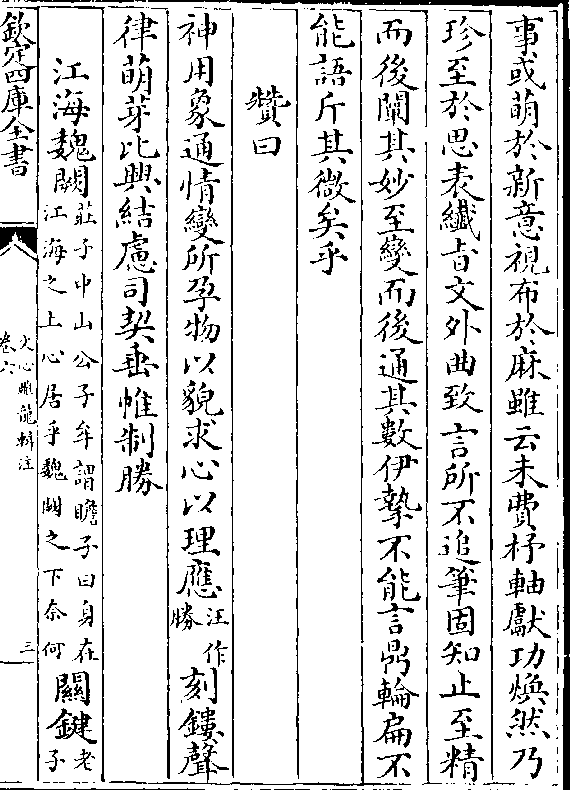 事或萌於新意視布於麻雖云未費杼軸獻功煥然乃
珍至於思表纖旨文外曲致言所不追筆固知止至精
而後闡其妙至變而後通其數伊摯不能言鼎輪扁不
能語斤其微矣乎
贊曰
神用象通情變所孕物以貌求心以理應汪作勝刻鏤聲
律萌芽比興結慮司契垂帷制勝
江海魏闕莊子中山公子牟謂瞻子曰身在江海之上心居乎魏闕之下奈何關鍵老子
欽定四庫全書
文心雕龍輯注
卷六
三